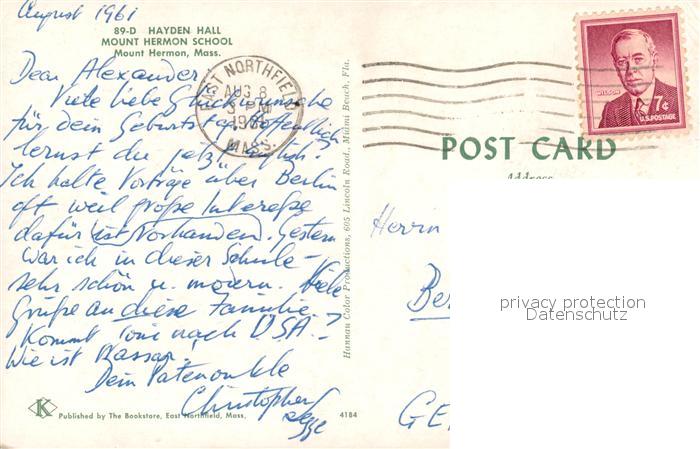 August 1961
89-D HAYDEN HALL
MOUNT HERMON SCHOOL
Mount Hermon, Mass.
Dear Alexander!
Viele liebe Glückwünsche
für dein Geburtstag. Hoffentlich
lernst du jetzt englisch?
Ich halte Vorträge über Berlin
oft weil große Intereße
dafür ist vorhanden. Gestern
war ich in dieser Schule –
sehr schön u. modern. Viele
Grüße an diese Familie.
Kommt nach USA?
Wie ist
Dein Patenonkle
Christopher
EAST NORTHFIELD
AUG 8
3 PM
MASS.
K
Published by The Bookstore, East Northfield, Mass.
4184
Hannau Color Productions, 605 Lincoln Road, Miami Beach, Fla.
WILSON
7¢
U.S. POSTAGE
POST CARD
Address
Herrn
Be
GE
privacy protection
Datenschutz